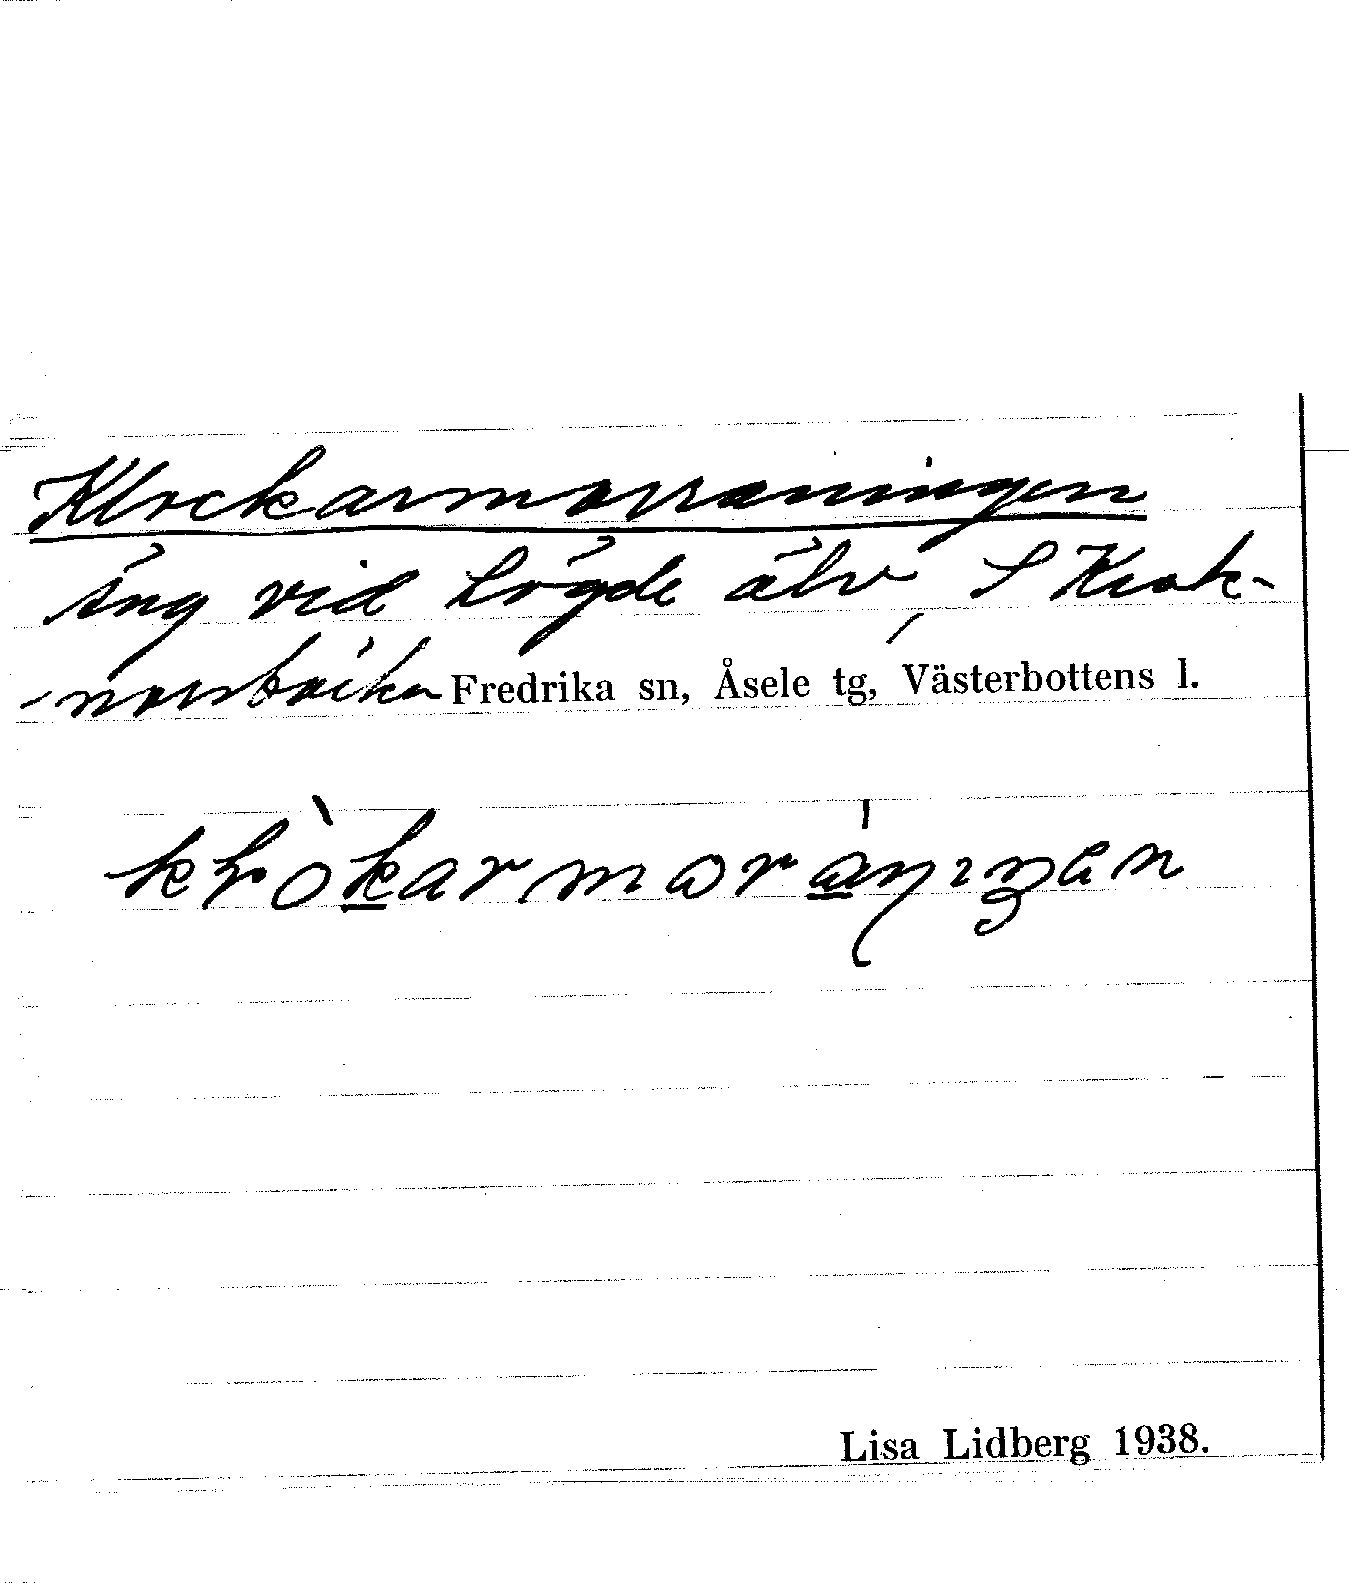 Klockarmorraningen
äng vid Lögde älv, S Krok-
Fredrika sn, Åsele tg, Västerbottens l.
Lisa Lidberg 1938.